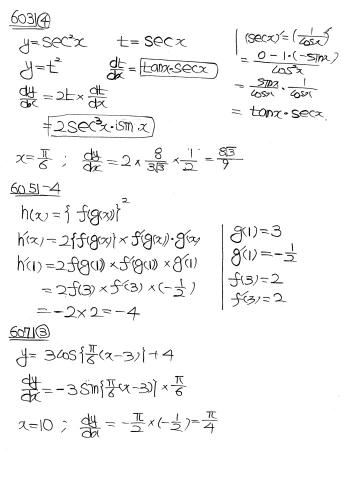 603)④
y=sec²x t=secx
y=t² dt/dx=tanx·secx
dy/dx=2t×dt/dx
=2sec³x·sinx
(secx)'=(1/cosx)'
=0-1·(-sinx)/cos²x
=sinx/cosx·1/cosx
=tanx·secx
x=π/6 ; dy/dx=2×8/3√3×1/2=8√3/9
605)-4
h(x)={f(g(x))}²
h'(x)=2{f(g(x))}×f'(g(x))·g'(x)
h'(1)=2f(g(1))×f'(g(1))×g'(1)
=2f(3)×f'(3)×(-1/2)
=-2×2=-4
g(1)=3
g'(1)=-1/2
f(3)=2
f'(3)=2
607)③
y=3cos{π/6(x-3)}+4
dy/dx=-3sin{π/6(x-3)}×π/6
x=10 ; dy/dx=-π/2×(-1/2)=π/4